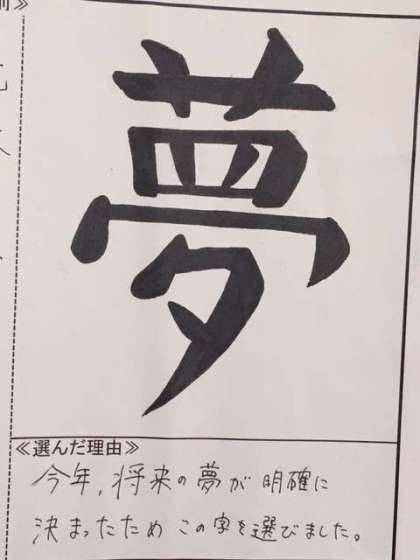 夢
≪選んだ理由≫
今年,将来の夢が明確に
決まったため この字を選びました。